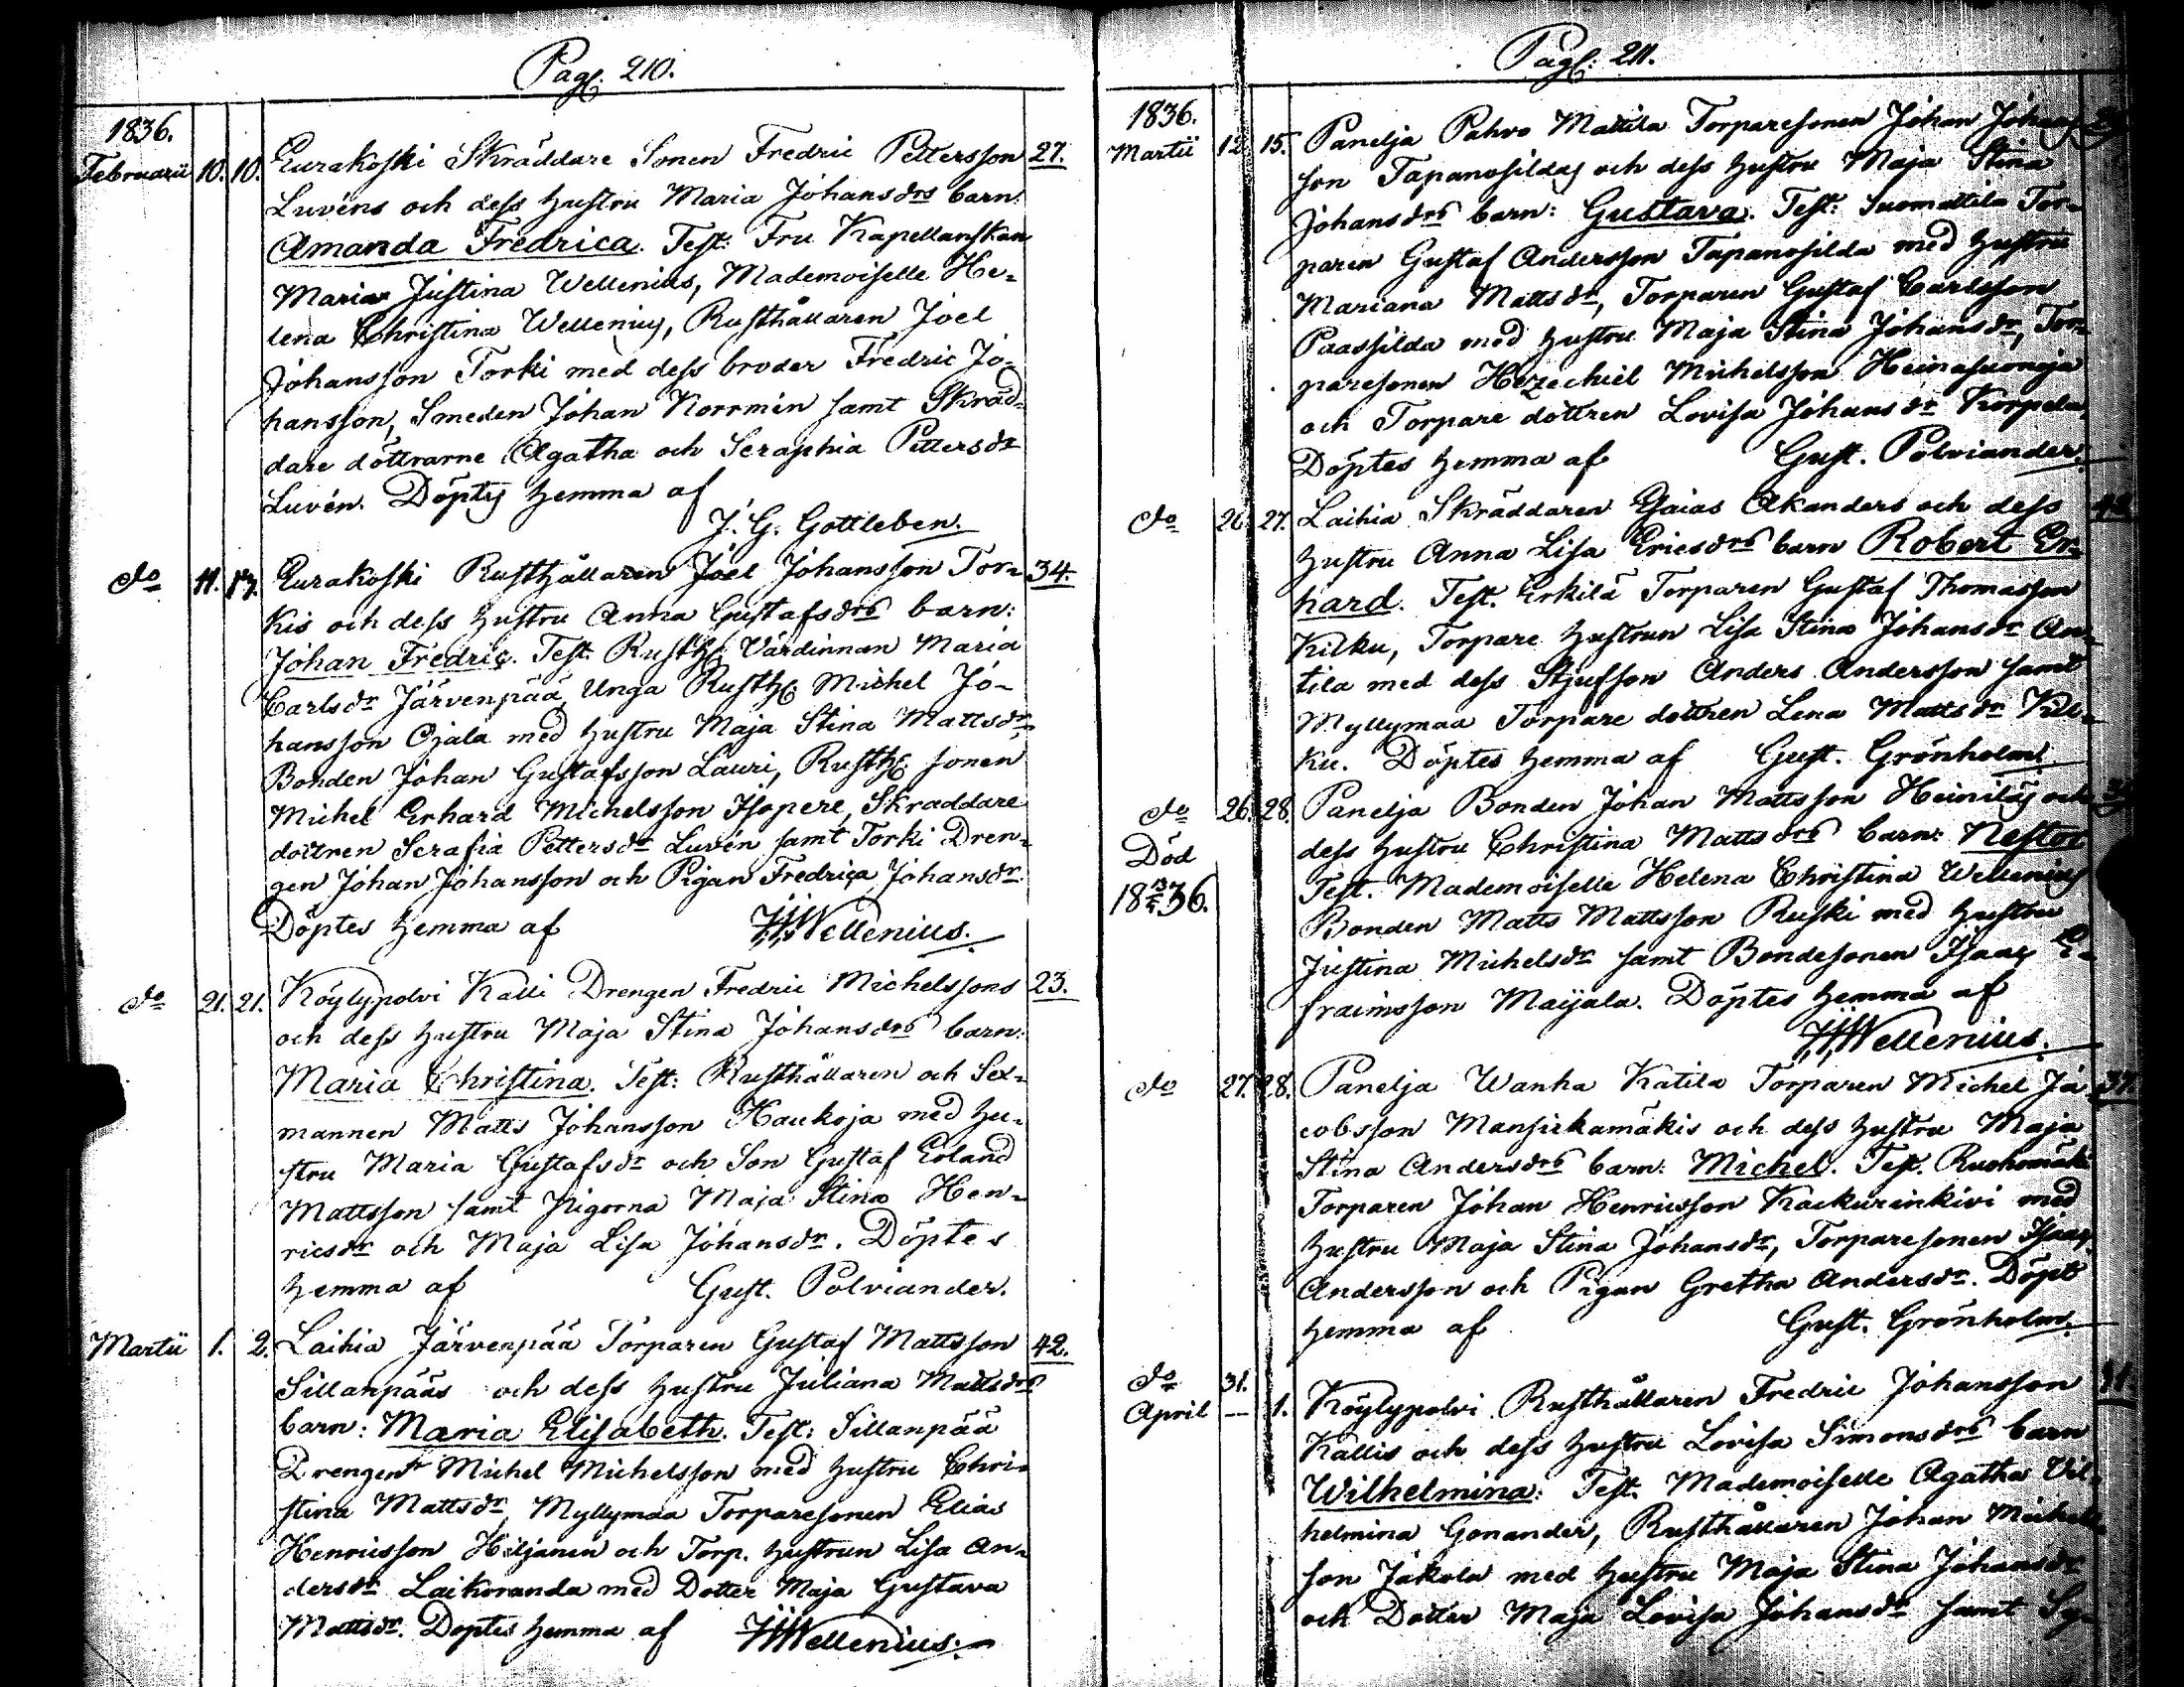 Pag: 210.
1836.
Februarii 10. 10. Eurakoski Skräddare Sonen Fredric Pettersson 27.
Luvéns och dess hustru Maria Johansdrs barn:
Amanda Fredrica. Test: Fru Kapellanskan
Maria Justina Wellenius, Mademoiselle He-
lena Christina Wellenius, Rusthållaren Joel
Johansson Torki med dess broder Fredric Jo-
hansson, Smeden Johan Korrmin samt Skräd-
dare döttrarne Agatha och Seraphia Pettersdr
Luvén. Döptes hemma af
J. G. Gottleben.
do 11. 13. Eurakoski Rusthållaren Joel Johansson Tor- 34.
kis och dess hustru Anna Gustafsdrs barn:
Johan Fredric. Test. Rusth: Värdinnan Maria
Carlsdr Järvenpää, Unga Rusth: Michel Jo-
hansson Ojala med hustru Maja Stina Mattsdr
Bonden Johan Gustafsson Lauri, Rusth: sonen
Michel Erhard Michelsson Isopere, Skräddare
dottren Serafia Pettersdr Luvén samt Torki Dren-
gen Johan Johansson och Pigan Fredrica Johansdr.
Döptes hemma af Wellenius.
do 21. 21. Köylypolvi Kalli Drengen Fredric Michelssons 23.
och dess hustru Maja Stina Johansdrs barn:
Maria Christina. Test: Rusthållaren och Sex-
mannen Matts Johansson Haukoja med hu-
stru Maria Gustafsdr och Son Gustaf Erland
Mattsson samt Pigorna Maja Stina Hen-
ricsdr och Maja Lisa Johansdr. Döptes
hemma af Gust. Polviander.
Martii 1. 2. Laihia Järvenpää Torparen Gustaf Mattsson 42.
Sillanpääs och dess hustru Juliana Mattsdrs
barn: Maria Elisabeth. Test: Sillanpää
Drengen Michel Michelsson med hustru Chri-
stina Mattsdr, Myllymaa Torparesonen Elias
Henricsson Hiljanen och Torp. hustrun Lisa An-
dersdr Laikoranda med Dotter Maja Gustava
Mattsdr. Döptes hemma af Wellenius.
Pag: 211.
1836.
Martii 12. 15. Panelja Pahvo Mattila Torparesonen Johan Johans-
son Tapanosildas och dess hustru Maja Stina
Johansdrs barn: Gustava. Test: Suomattila Tor-
paren Gustaf Andersson Tapanosilda med hustru
Mariana Mattsdr, Torparen Gustaf Carlsson
Paassilda med hustru Maja Stina Johansdr, Tor-
paresonen Hezechiel Michelsson Heinasuonoja
och Torpare dottren Lovisa Johansdr Korpela,
Döptes hemma af Gust. Polviander.
do 26. 27. Laihia Skräddaren Esaias Akanders och dess
hustru Anna Lisa Ericsdrs barn Robert Er-
hard. Test. Erkilä Torparen Gustaf Thomasson
Kilku, Torpare hustrun Lisa Stina Johansdr An-
tila med dess Stjufson Anders Andersson samt
Myllymaa Torpare dottren Lena Mattsdr Kil-
ku. Döptes hemma af Gust. Grönholm.
do 26. 28. Panelja Bonden Johan Mattsson Heinilas och
Död dess hustru Christina Mattsdrs barn: Nestor
1836. Test. Mademoiselle Helena Christina Wellenius
Bonden Matts Mattsson Ruski med hustru
Justina Michelsdr samt Bondesonen Isaac E-
fraimsson Maijala. Döptes hemma af
Wellenius.
do 27. 28. Panelja Wanha Katila Torparen Michel Ja- 37.
cobsson Mansickamäkis och dess hustru Maja
Stina Andersdrs barn: Michel. Test. Ruohomäki
Torparen Johan Henricsson Kackurinkivi med
hustru Maja Stina Johansdr, Torparesonen Isaac
Andersson och Pigan Gretha Andersdr. Döpt
hemma af Gust. Grönholm.
do 31.
April — 1. Köylypolvi Rusthållaren Fredric Johansson
Kallis och dess hustru Lovisa Simonsdrs barn
Wilhelmina: Test. Mademoiselle Agatha Vil-
helmina Gonander, Rusthållaren Johan Michels-
son Jakola med hustru Maja Stina Johansdr
och Dotter Maja Lovisa Johansdr samt Sy-